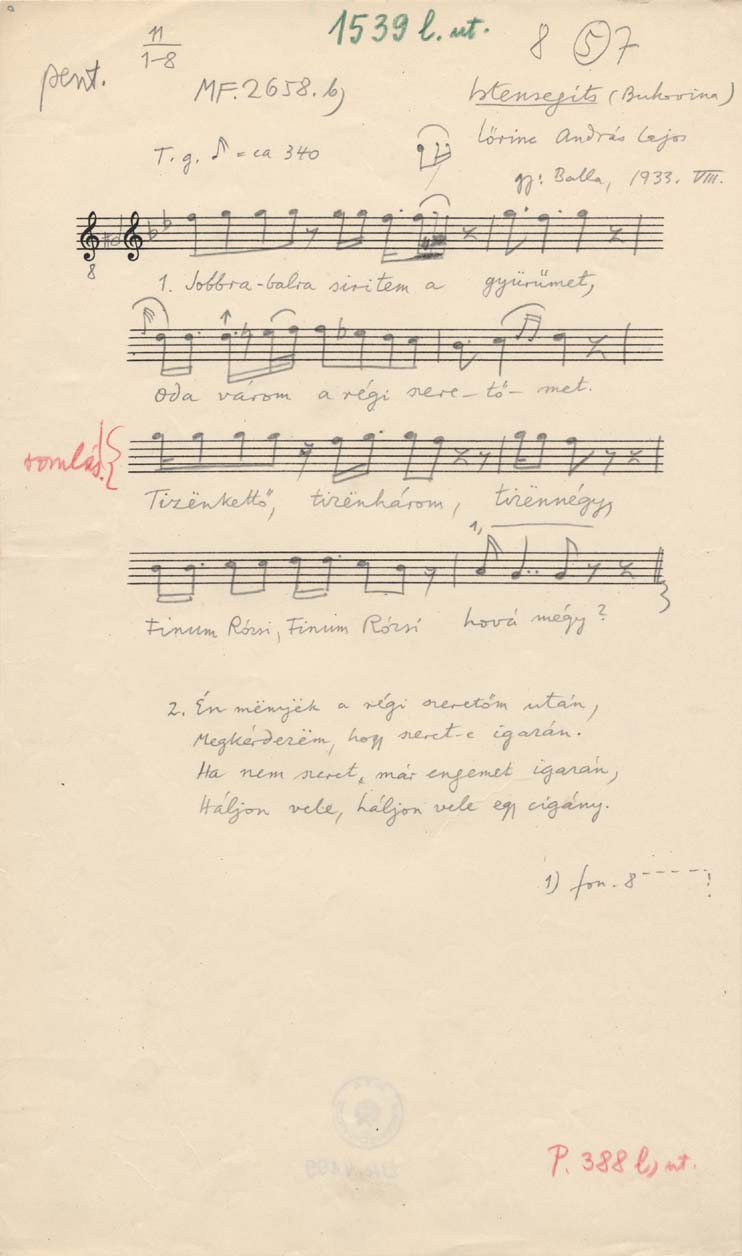 1539 l. ut.
11
1-8
8 5 7
pent.
MF. 2658. b)
Istensegíts (Bukovina)
T. g. ♪ = ca 340
Lőrinc András Lajos
gy: Balla, 1933. VIII.
8
1. Jobbra-balra siritem a gyürümet,
Oda várom a régi szere-tő-met.
romlás.
Tizënkettő, tizënhárom, tizënnégy,
1)
Finum Rózsi, Finum Rózsi hová mégy?
2. Én mënnyëk a régi szeretőm után,
Megkérdezëm, hogy szeret-e igazán.
Ha nem szeret már engemet igazán,
Háljon vele, háljon vele egy cigány.
1) fon. 8
P. 388 b) ut.